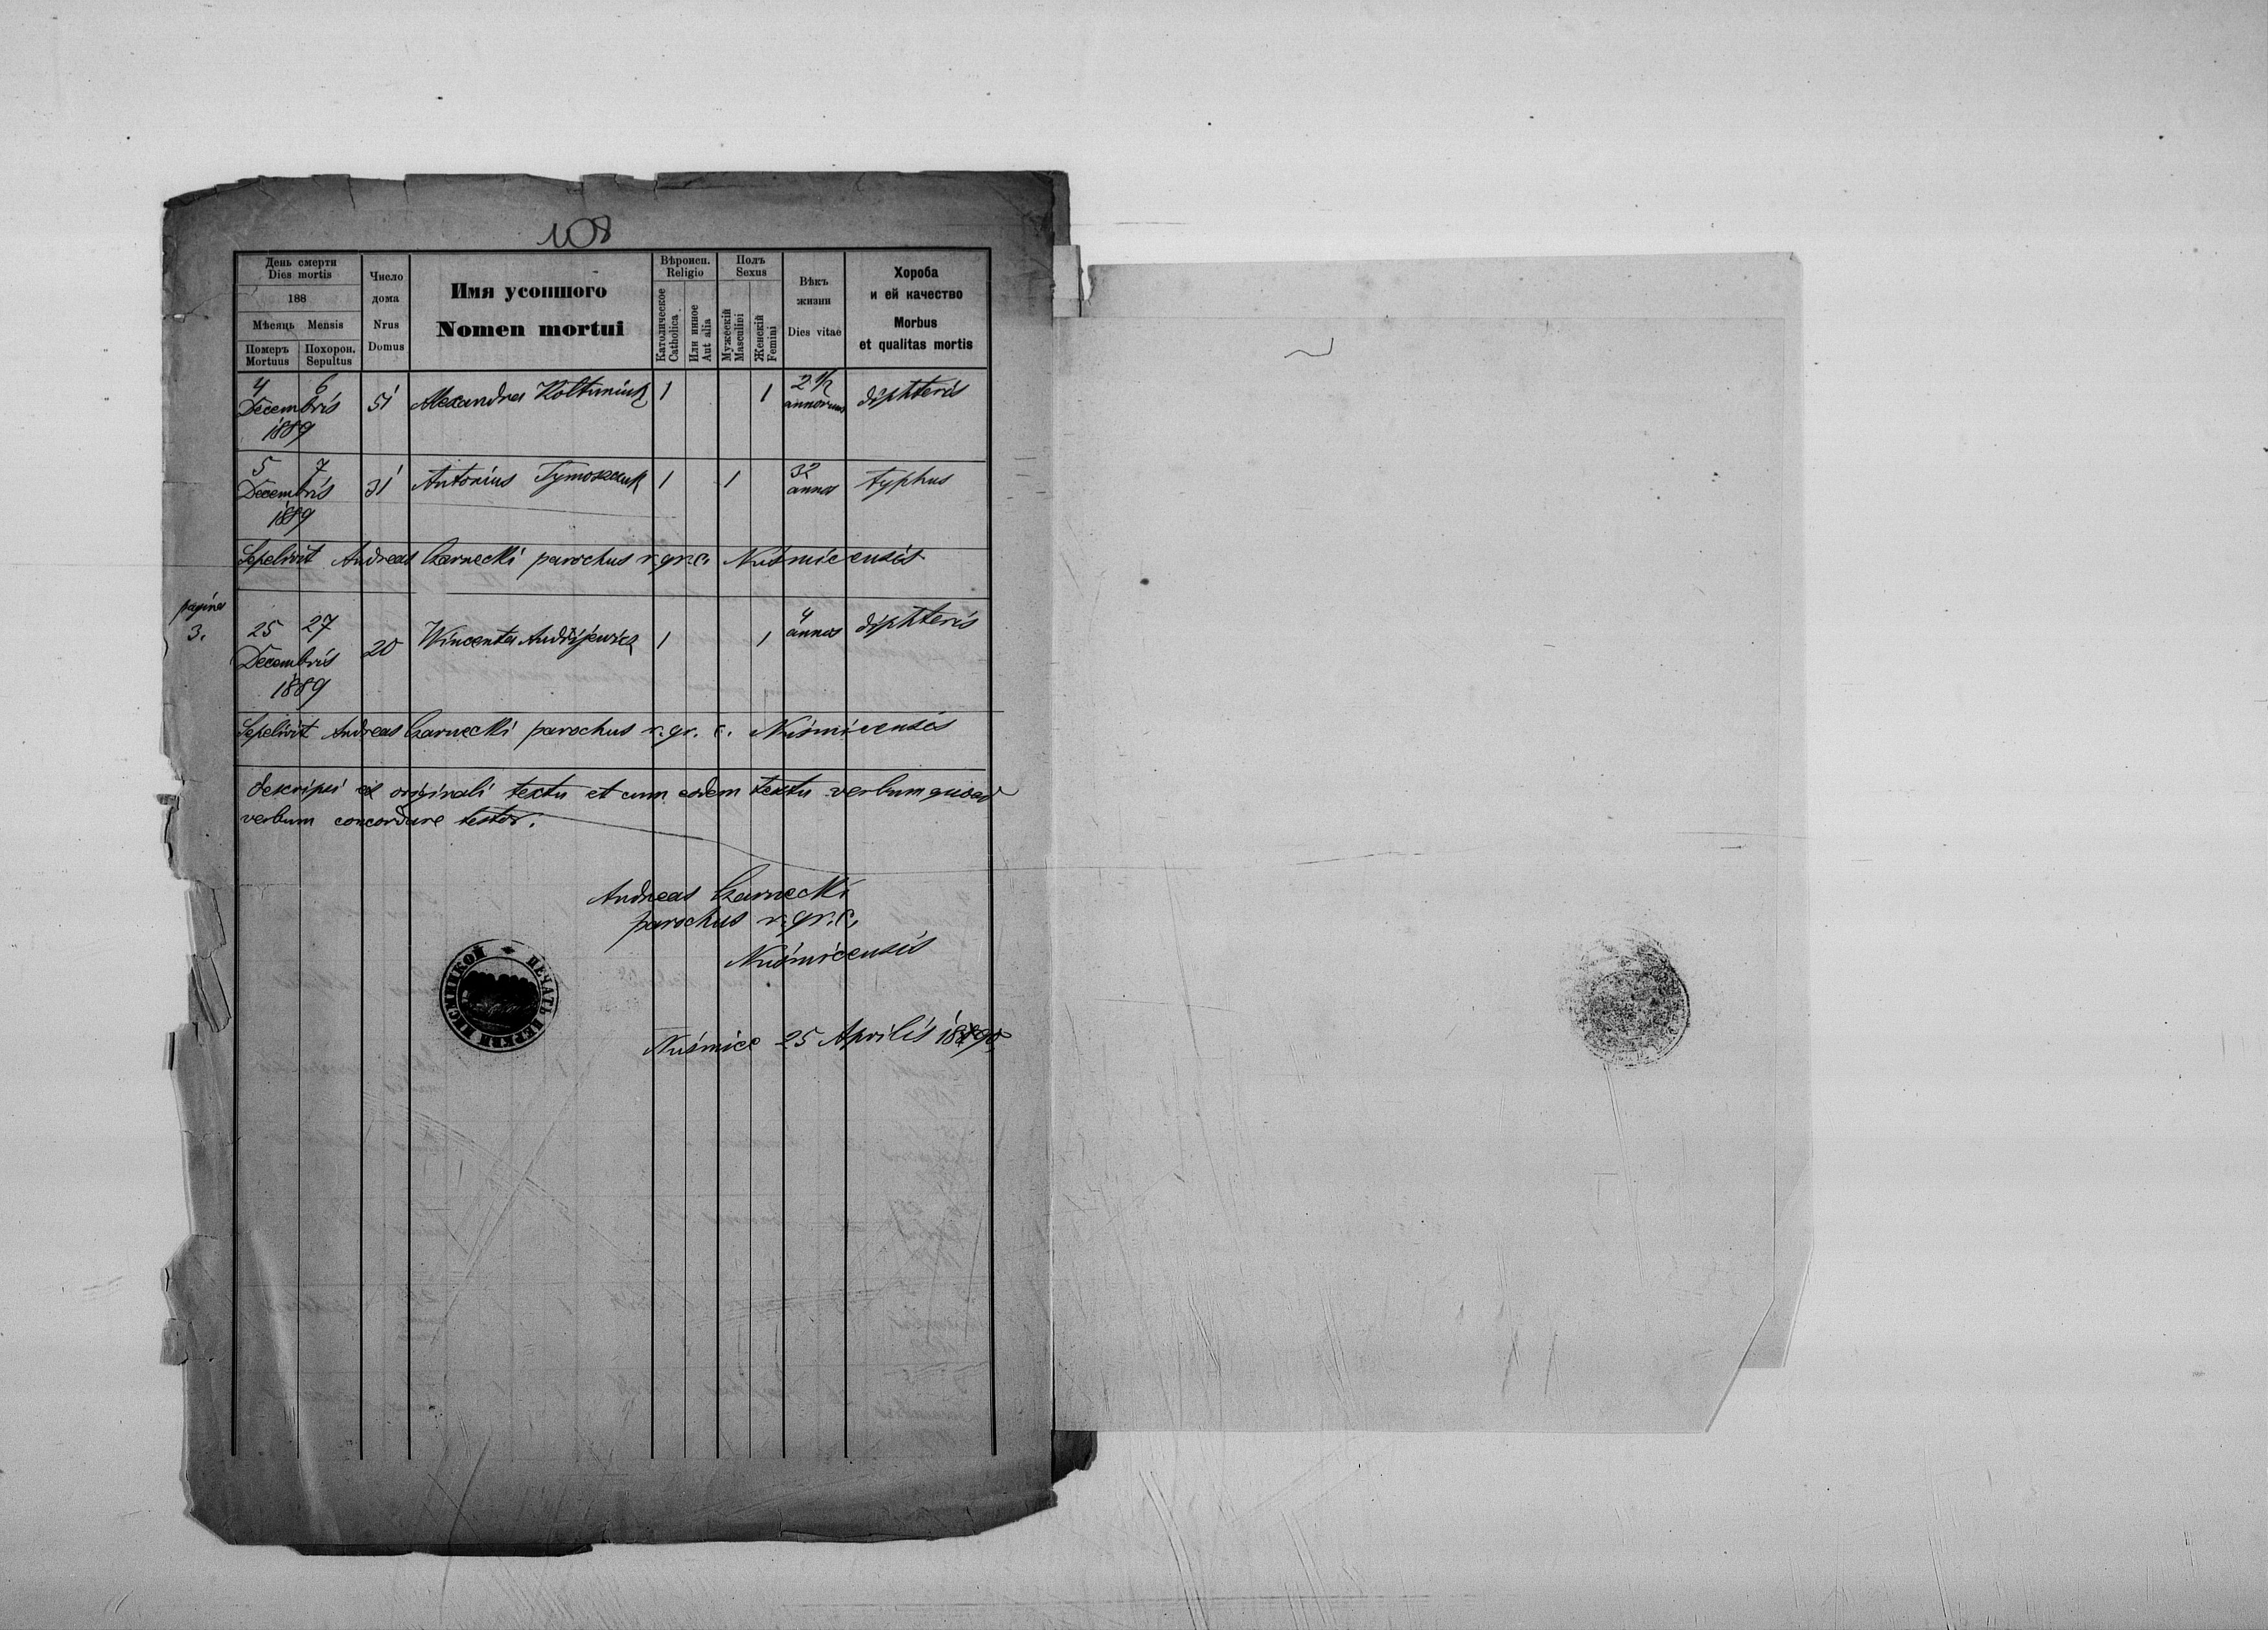 108
День смерти
Dies mortis
188
Мѣсяць Mensis
Померъ Похорон.
Mortuus Sepultus
Число
дома
Nrus
Domus
Имя усопшого
Nomen mortui
Вѣроисп.
Religio
Католическое
Catholica
Или инное
Aut alia
Полъ
Sexus
Мужескій
Masculini
Женскій
Femini
Вѣкъ
жизни
Dies vitae
Хороба
и ей качество
Morbus
et qualitas mortis
4 6
Decembris
1889
51 Alexandra Koltuniuk 1 1 2 1/2
annorum
diphteris
5 7
Decembris
1889
31 Antonius Tymoszczuk 1 1 32
annos
typhus
Sepelivit Andreas Czarnecki parochus r. gr. c. Nuśmicensis
pagina
3.
25 27
Decembris
1889
20 Wincenta Andryjewicz 1 1 4
annos
diphteris
Sepelivit Andreas Czarnecki parochus r. gr. c. Nuśmicensis
descripsi ex originali textu et cum eodem textu verbum quoad
verbum concordare testor.
Andreas Czarnecki
parochus r. gr. c.
Nuśmicensis
Nuśmice 25 Aprilis 1890
ПЕЧАТЬ ЦЕРКВИ